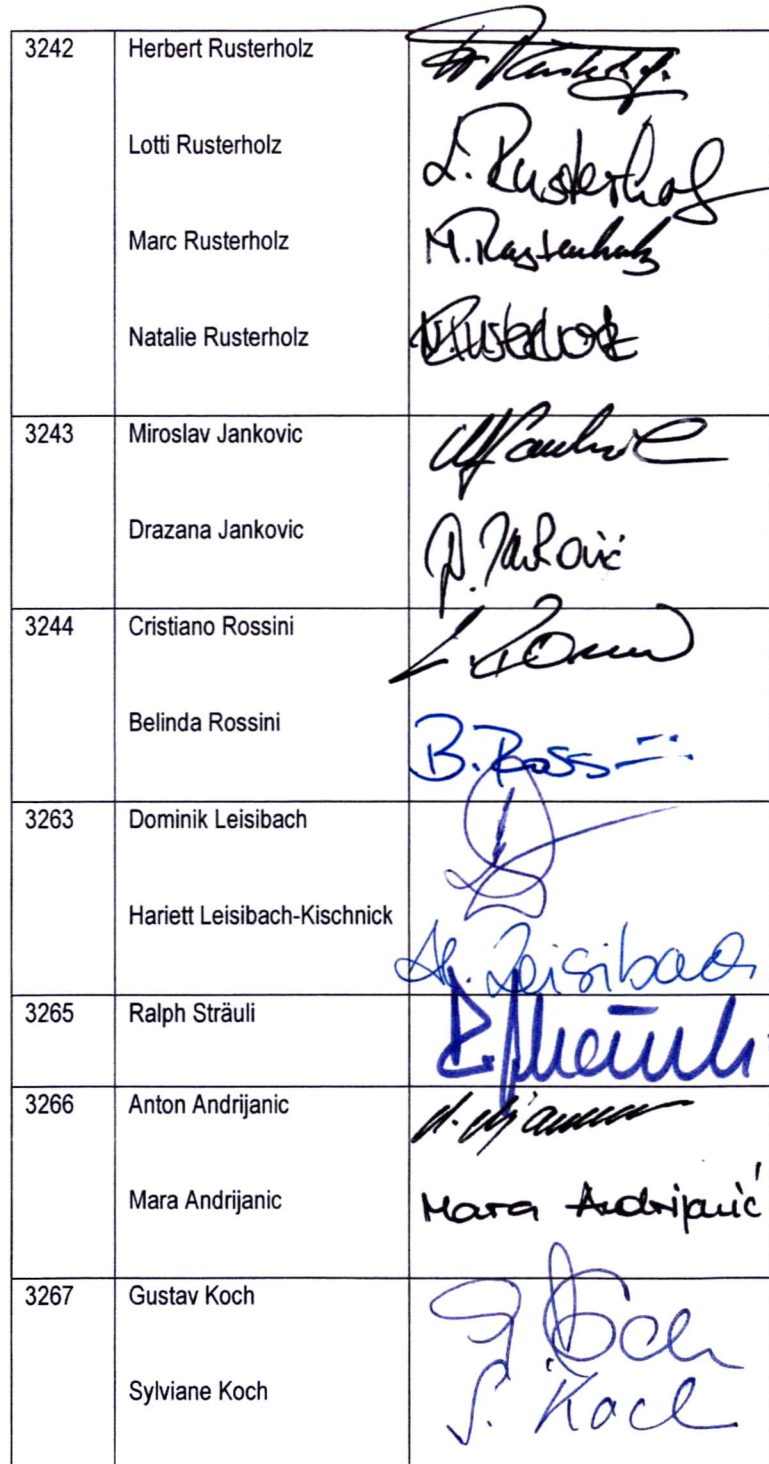 3242 Herbert Rusterholz
Lotti Rusterholz L. Rusterholz
Marc Rusterholz M. Rusterholz
Natalie Rusterholz N. Rusterholz
3243 Miroslav Jankovic
Drazana Jankovic D. Janković
3244 Cristiano Rossini
Belinda Rossini B. Rossini
3263 Dominik Leisibach
Hariett Leisibach-Kischnick H. Leisibach
3265 Ralph Sträuli R. Sträuli
3266 Anton Andrijanic
Mara Andrijanic Mara Andrijanić
3267 Gustav Koch G. Koch
Sylviane Koch S. Koch